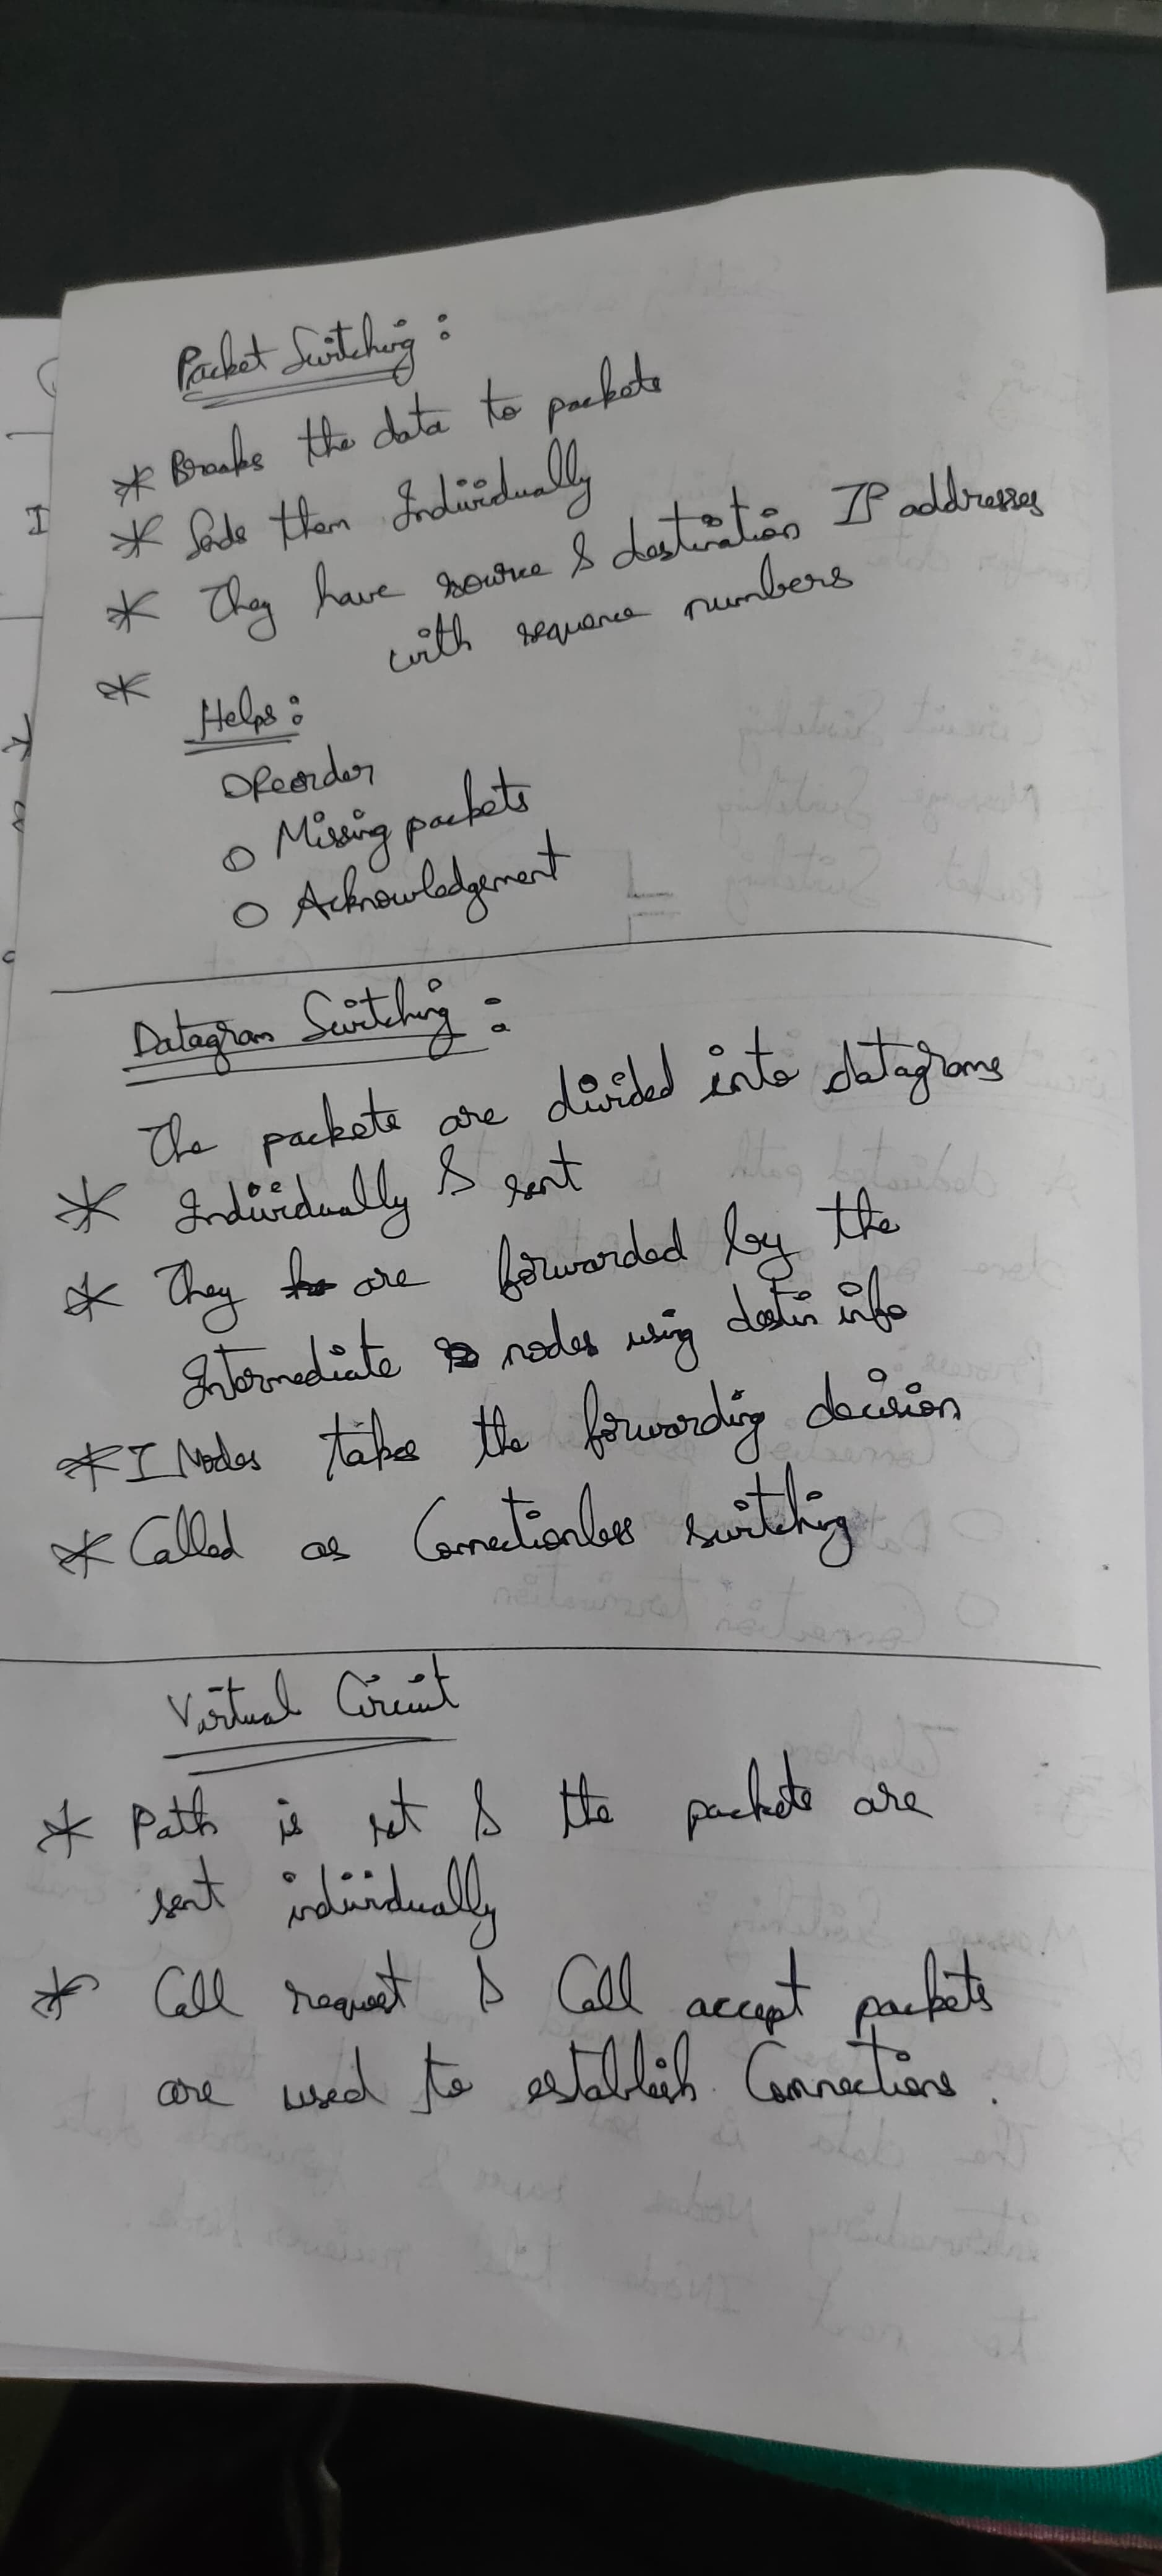 Packet Switching :
* Breaks the data to packets
* Sends them Individually
* They have source & destination IP addresses
with sequence numbers
*
Helps :
O Reorder
O Missing packets
O Acknowledgement
Datagram Switching :
The packets are divided into datagrams
* Individually & sent
* They are forwarded by the
Intermediate nodes using destin info
* I Nodes takes the forwarding decision
* Called as Connectionless switching
Virtual Circuit
* Path is set & the packets are
sent individually
* Call request & Call accept packets
are used to establish Connections.